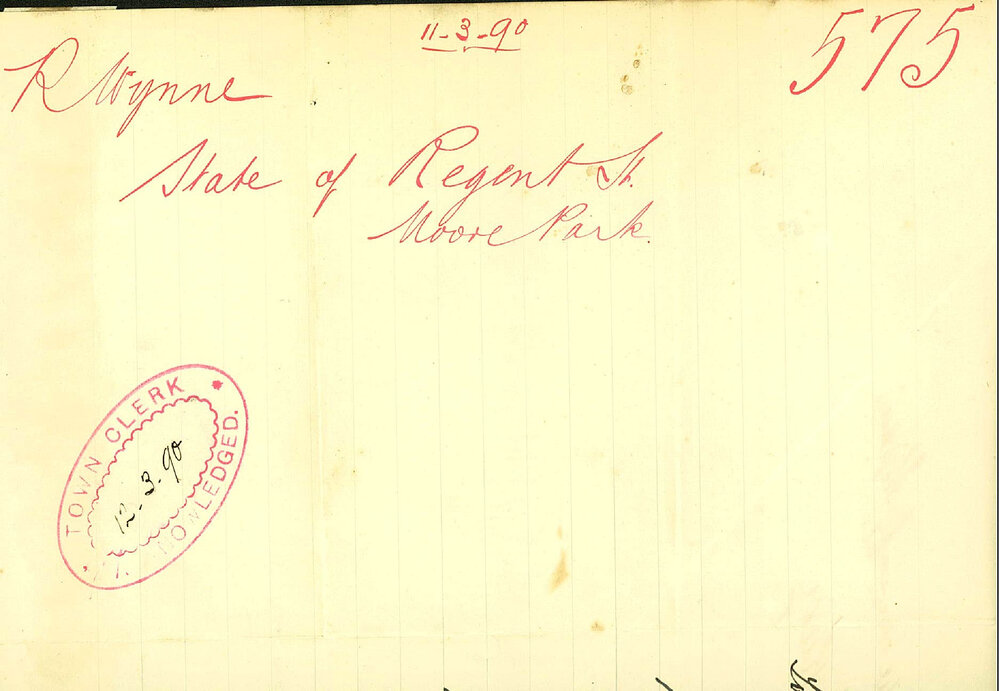 11-3-90
575
R Wynne
State of Regent St.
Moore Park.
TOWN CLERK
12-3-90